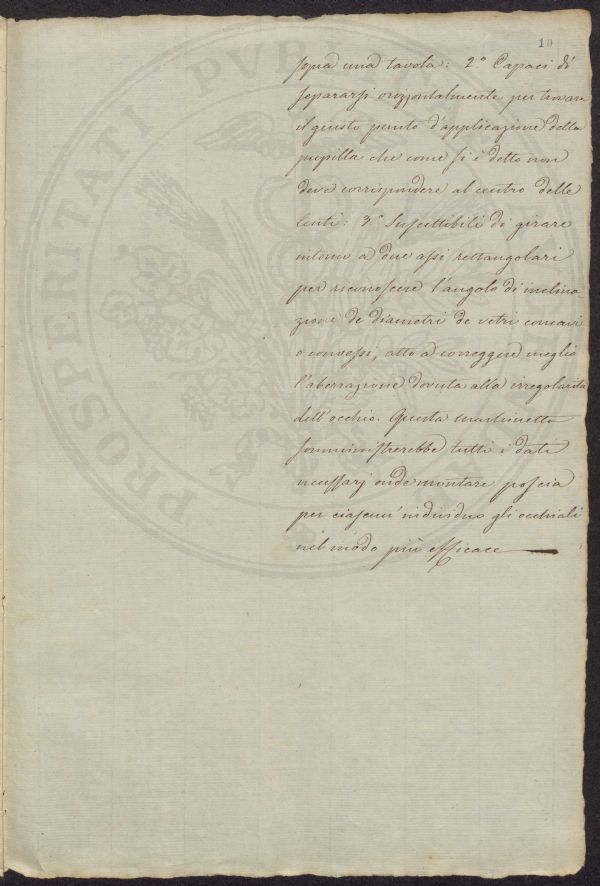 10
sopra una tavola: 2.° Capaci di
separarsi orizzontalmente per trovare
il giusto punto d'applicazione della
pupilla che come si è detto non
deve corrispondere al centro delle
lenti: 3.° Suscettibili di girare
intorno a due assi rettangolari
per riconoscere l'angolo di inclina-
zione de diametri de vetri concavi
o convessi, atto a correggere meglio
l'aberrazione dovuta alla irregolarità
dell'occhio. Questa
somministrerebbe tutti i dati
necessarj onde montare poscia
per ciascun individuo gli occhiali
nel modo più efficace
PROSPERITATI PVB